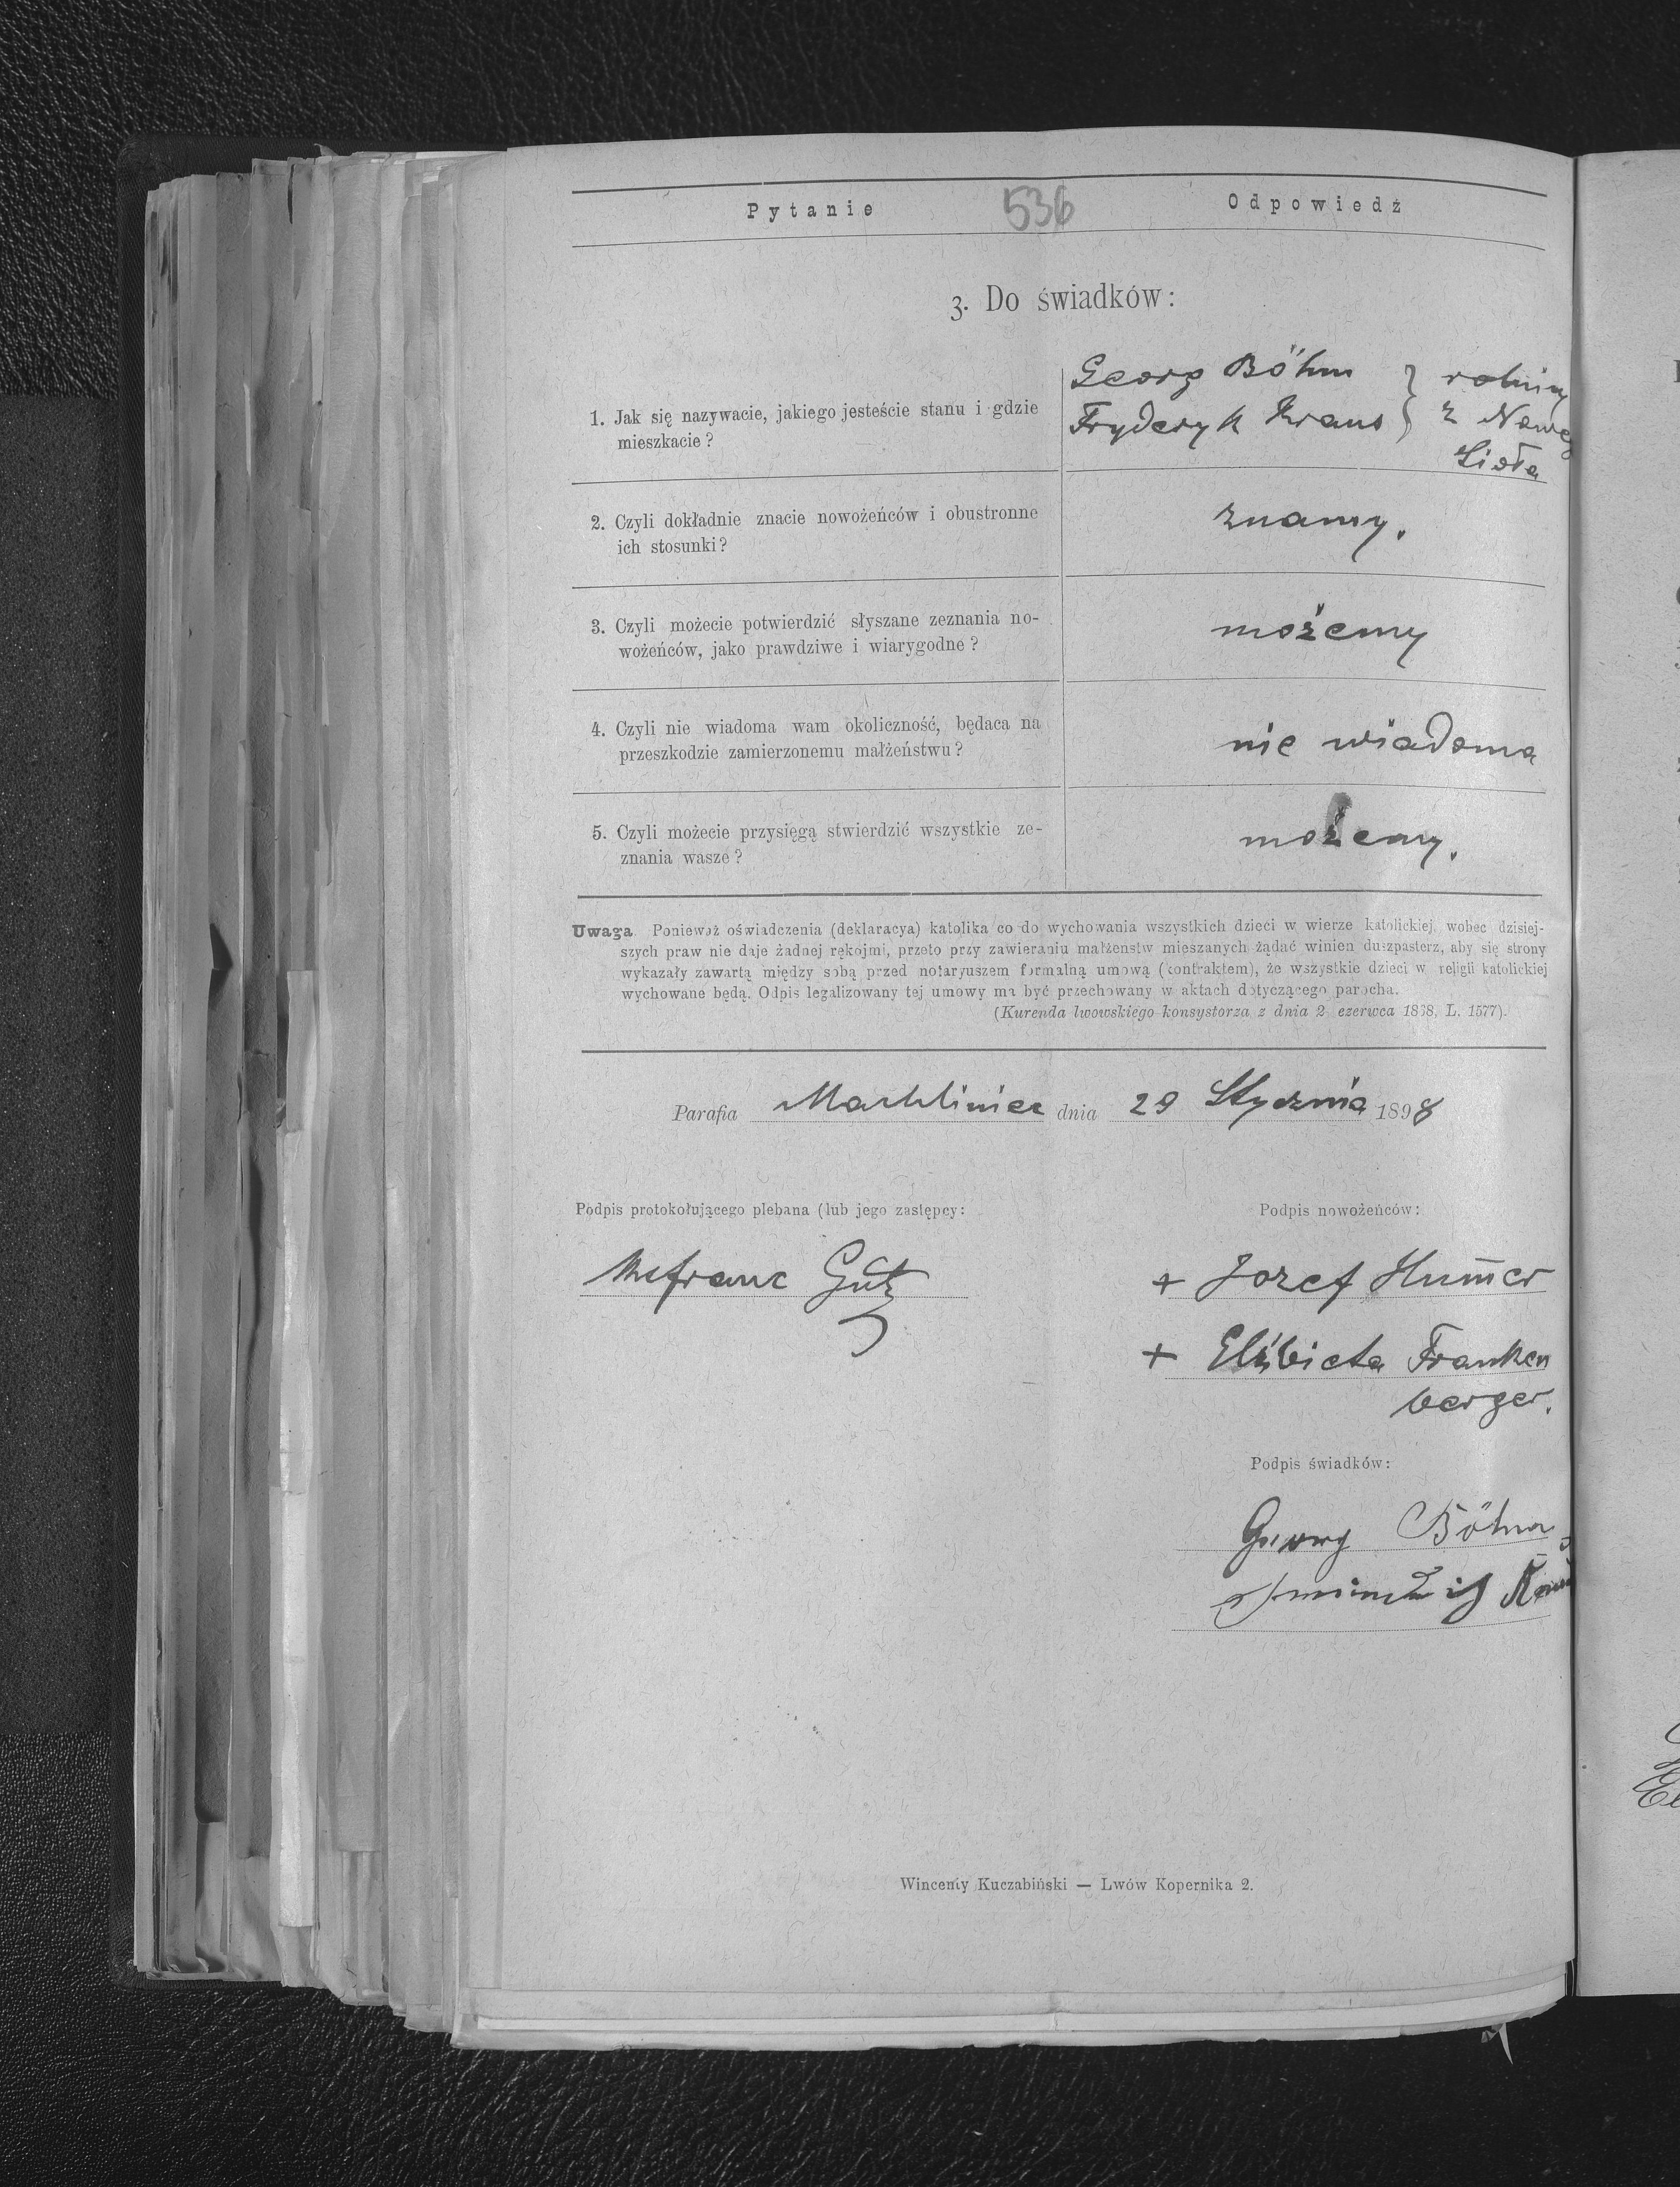 Pytanie 536 Odpowiedź
3. Do świadków:
1. Jak się nazywacie, jakiego jesteście stanu i gdzie
mieszkacie?
Georg Böhm } rolnicy
Fryderyk Kraus } z Nowego
Sioła
2. Czyli dokładnie znacie nowożeńców i obustronne
ich stosunki?
znamy.
3. Czyli możecie potwierdzić słyszane zeznania no-
wożeńców, jako prawdziwe i wiarygodne?
możemy
4. Czyli nie wiadoma wam okoliczność, będaca na
przeszkodzie zamierzonemu małżeństwu?
nie wiadoma
5. Czyli możecie przysięgą stwierdzić wszystkie ze-
znania wasze?
możemy.
Uwaga Ponieważ oświadczenia (deklaracya) katolika co do wychowania wszystkich dzieci w wierze katolickiej, wobec dzisiej-
szych praw nie daje żadnej rękojmi, przeto przy zawieraniu małżenstw mieszanych żądać winien duszpasterz, aby się strony
wykazały zawartą między sobą przed notaryuszem formalną umową (kontraktem), że wszystkie dzieci w religii katolickiej
wychowane będą. Odpis legalizowany tej umowy ma być przechowany w aktach dotyczącego parocha.
(Kurenda lwowskiego konsystorza z dnia 2 czerwca 1868, L. 1577).
Parafia Machliniec dnia 29 Stycznia 1898
Podpis protokołującego plebana (lub jego zastępcy:
Podpis nowożeńców:
+ Jozef Hum̅er
+ Elżbieta Franken
berger.
Podpis świadków:
Georg Böhm
Wincenty Kuczabiński — Lwów Kopernika 2.